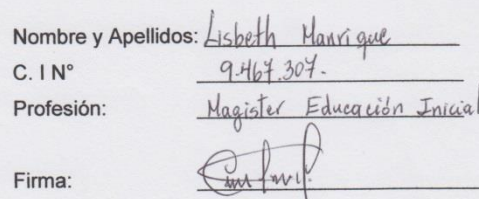 Nombre y Apellidos: Lisbeth Manrique
C. I N° 9.467.307.
Profesión: Magister Educación Inicial
Firma: